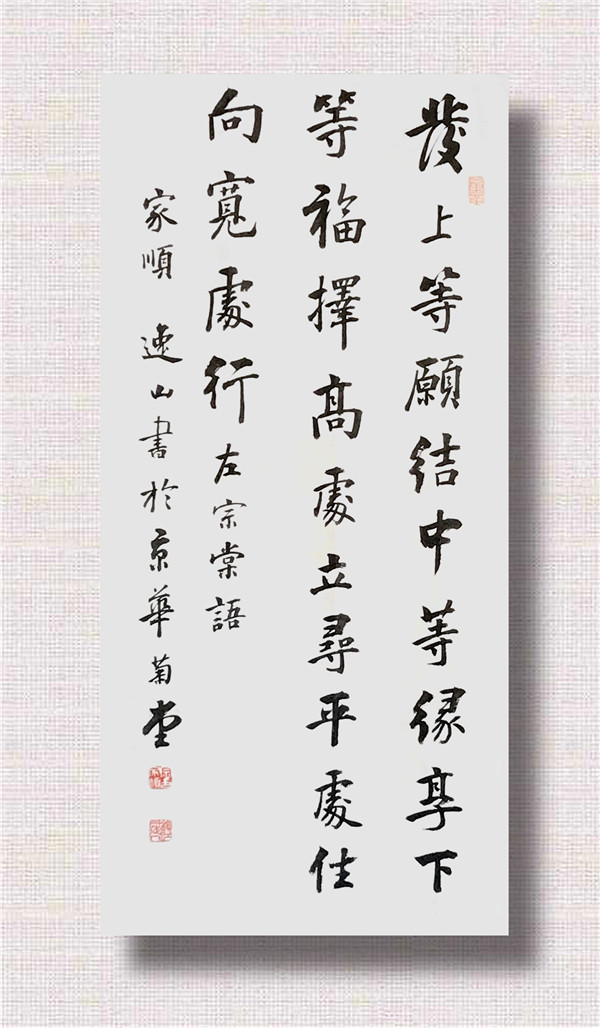 發上等願結中等緣享下
等福擇高處立尋平處住
向寬處行左宗棠語
家順逸山書於京華菊堂